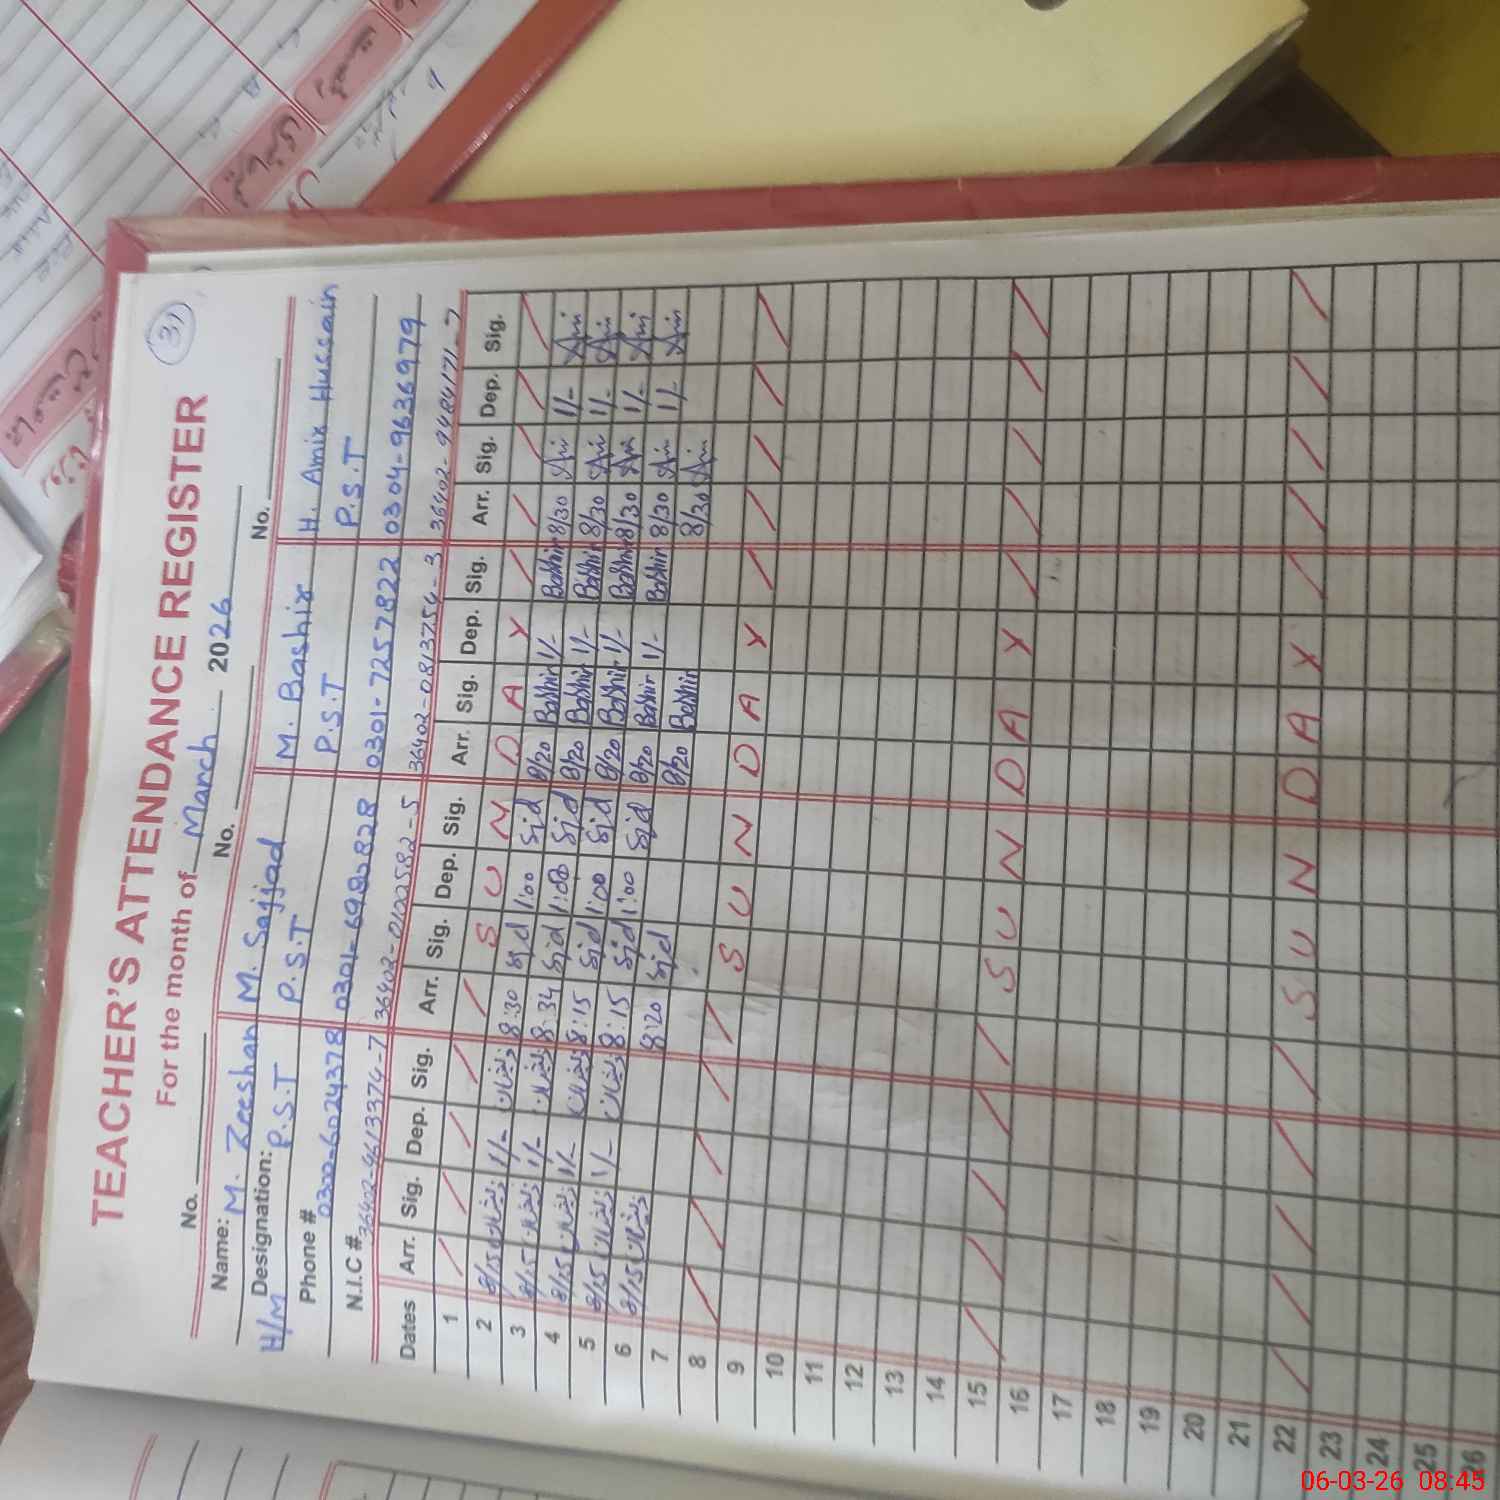 31
TEACHER'S ATTENDANCE REGISTER
For the month of March 2026
No. No. No.
Name: M. Zeeshan M. Sajjad M. Bashir H. Amir Hussain
Designation: H/M P.S.T P.S.T P.S.T P.S.T
Phone # 0300-6024378 0301-6980828 0301-7257822 0304-9636979
N.I.C # 36402-9613374-7 36402-0100582-5 36402-0813754-3 36402-9484171-7
Dates Arr. Sig. Dep. Sig. Arr. Sig. Dep. Sig. Arr. Sig. Dep. Sig. Arr. Sig. Dep. Sig.
1 S U N D A Y
2 8/15 1/- 8:30 Sjd 1:00 Sjd 8/20 Bashir 1/- Bashir 8/30 1/-
3 8/15 1/- 8:34 Sjd 1:00 Sjd 8/20 Bashir 1/- Bashir 8/30 1/-
4 8/15 1/- 8:15 Sjd 1:00 Sjd 8/20 Bashir 1/- Bashir 8/30 1/-
5 8/15 1/- 8:15 Sjd 1:00 Sjd 8/20 Bashir 1/- Bashir 8/30 1/-
6 8/15 8:20 Sjd 8/20 Bashir 8/30
7
8 S U N D A Y
9
10
11
12
13
14
15 S U N D A Y
16
17
18
19
20
21
22 S U N D A Y
23
24
25
26
06-03-26 08:45